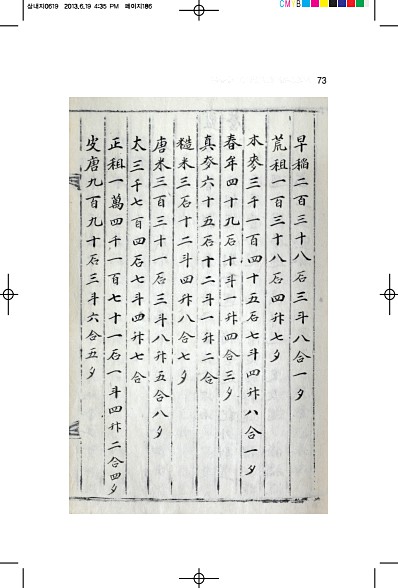 삼내지0619 2013.6.19 4:35 PM 페이지186
CMYB
73
早稲二百三十八石三斗八合一夕
荒租一百三十八石四升七夕
本麥三千一百四十五石七斗四升八合一夕
春牟四十九石十斗一升四合三夕
真麥六十五石十二斗一升二合
糙米三石十二斗四升八合七夕
唐米三百三十一石三斗八升五合八夕
太三千七百四石七斗四升七合
正租一萬四千一百七十一石一斗四升二合四夕
皮唐九百九十石三斗六合五夕